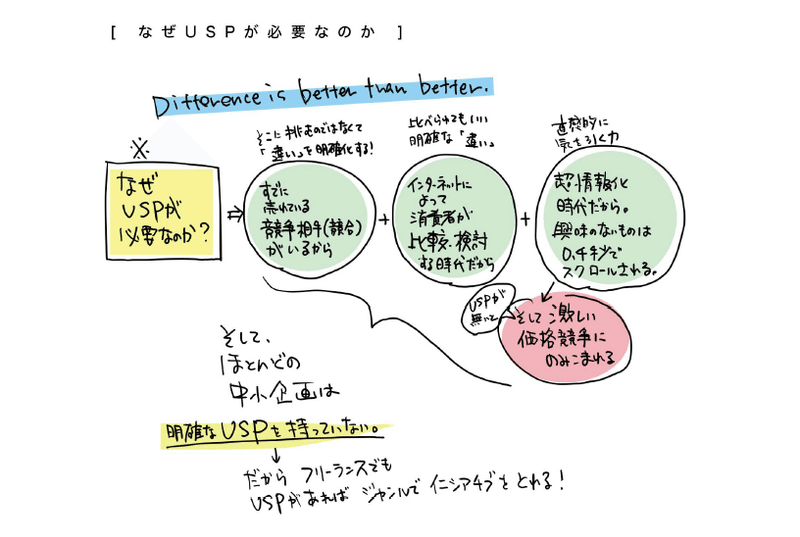 [ なぜUSPが必要なのか ]
Difference is better than better.
※
なぜ
USPが
必要なのか?
⇒
そこに挑むのではなくて
「違い」を明確化する!
すでに
売れている
競争相手(競合)
がいるから
+
比べられてもいい
明確な「違い」
インターネットに
よって
消費者が
比較・検討
する時代だから
+
直感的に
気を引く力
超情報化
時代だから。
興味のないものは
0.4秒で
スクロールされる。
USPが
無いと
そして激しい
価格競争に
のみこまれる
そして、
ほとんどの
中小企画は
明確なUSPを持っていない。
↓
だから フリーランスでも
USPがあれば ジャンルで イニシアチブをとれる!